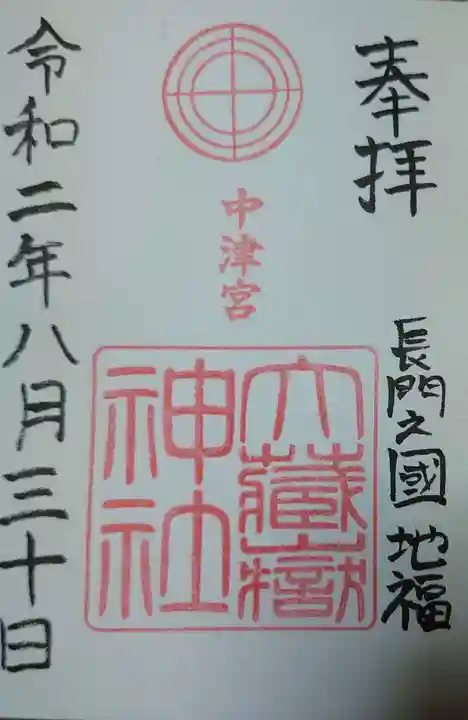 奉拝
長門之國 地福
中津宮
大蔵嶽
神社
令和二年八月三十日